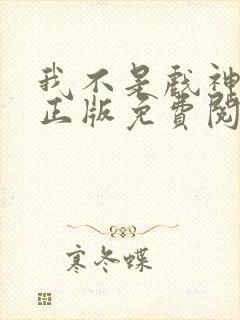 我不是戲神
正版免費閱
寒冬蝶